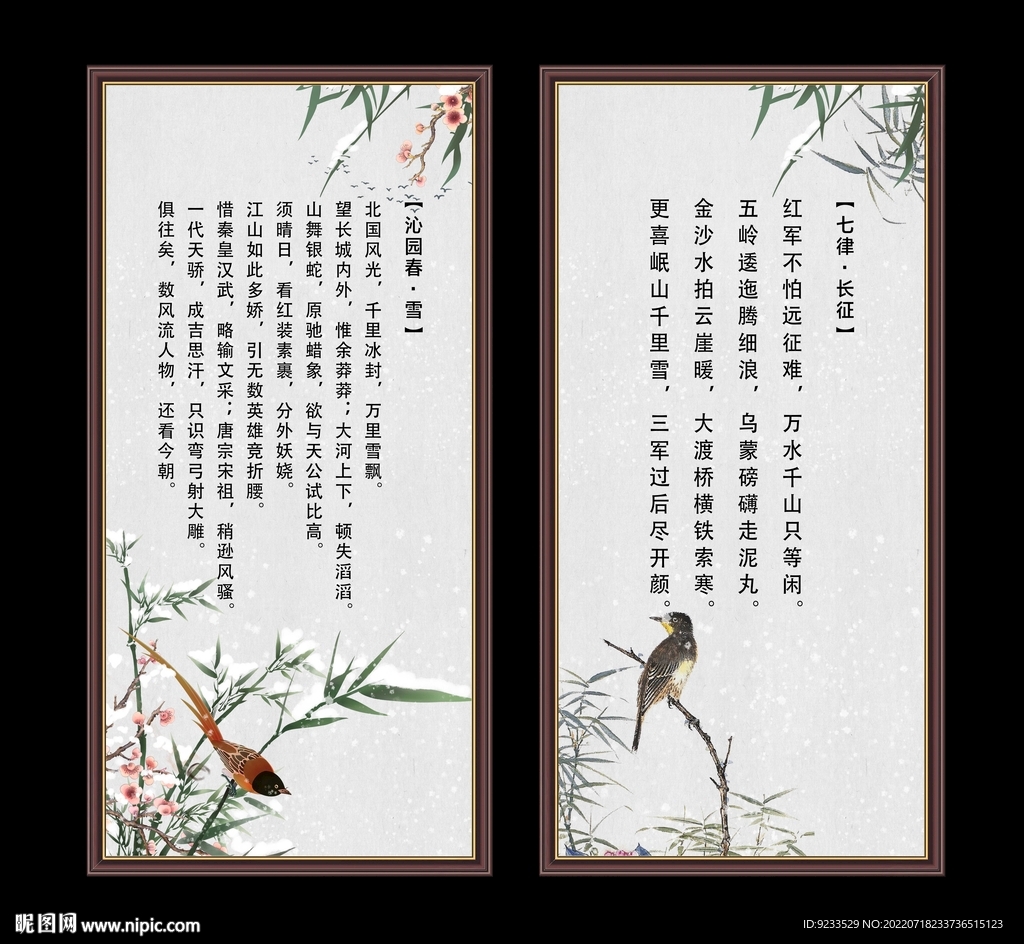 【沁园春·雪】
北国风光，千里冰封，万里雪飘。
望长城内外，惟余莽莽；大河上下，顿失滔滔。
山舞银蛇，原驰蜡象，欲与天公试比高。
须晴日，看红装素裹，分外妖娆。
江山如此多娇，引无数英雄竞折腰。
惜秦皇汉武，略输文采；唐宗宋祖，稍逊风骚。
一代天骄，成吉思汗，只识弯弓射大雕。
俱往矣，数风流人物，还看今朝。
【七律·长征】
红军不怕远征难，万水千山只等闲。
五岭逶迤腾细浪，乌蒙磅礴走泥丸。
金沙水拍云崖暖，大渡桥横铁索寒。
更喜岷山千里雪，三军过后尽开颜。
昵图网 www.nipic.com
ID:9233529 NO:20220718233736515123